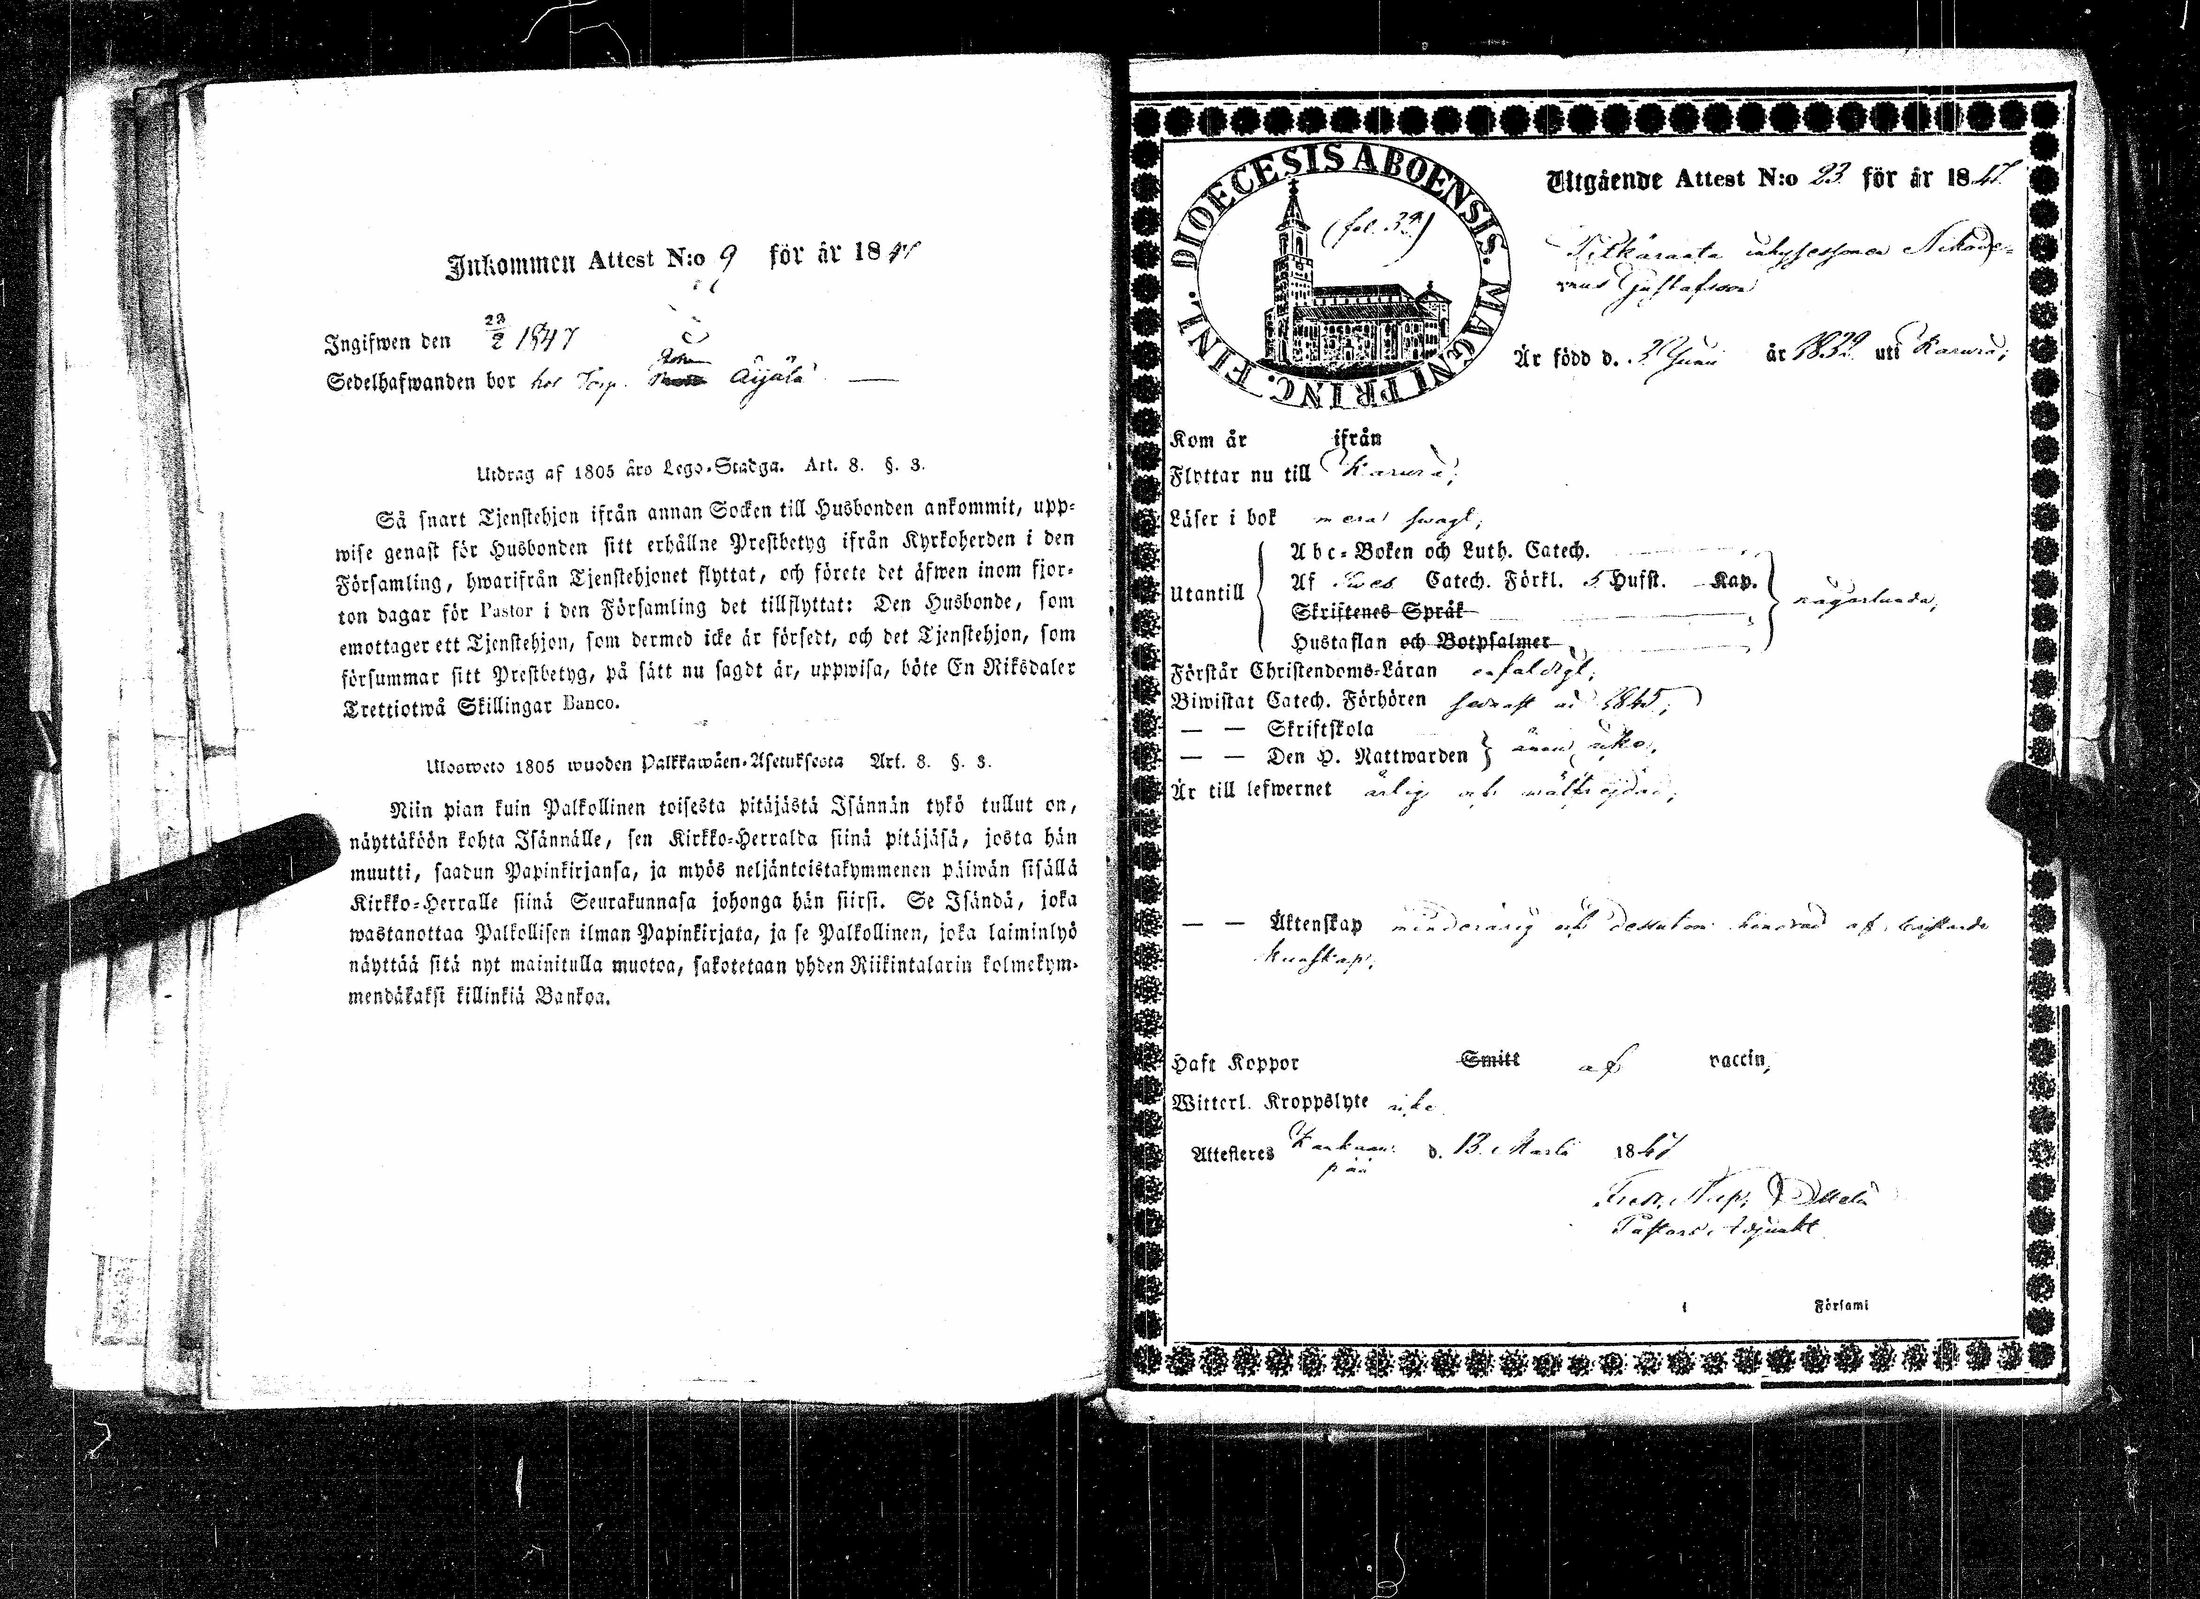 Inkommen Attest N:o 9 för år 1847
Ingifwen den 23/2 1847
Sedelhafwanden bor hos Torp. Johan Äijälä
Utdrag af 1805 åro Lego-Stadga. Art. 8. §. 3.
Så snart Tjenstehjon ifrån annan Socken till Husbonden ankommit, upp-
wise genast för Husbonden sitt erhållne Prestbetyg ifrån Kyrkoherden i den
Församling, hwarifrån Tjenstehjonet flyttat, och förete det äfwen inom fjor-
ton dagar för Pastor i den Församling det tillflyttat: Den Husbonde, som
emottager ett Tjenstehjon, som dermed icke är försedt, och det Tjenstehjon, som
försummar sitt Prestbetyg, på sätt nu sagdt är, uppwisa, böte En Riksdaler
Trettiotwå Skillingar Banco.
Ulosweto 1805 wuoden Palkkawäen-Asetuksesta Art. 8. §. 3.
Niin pian kuin Palkollinen toisesta pitäjästä Isännän tykö tullut on,
näyttäköön kohta Isännälle, sen Kirkko-Herralda siinä pitäjäsä, josta hän
muutti, saadun Papinkirjansa, ja myös neljäntoistakymmenen päiwän sisällä
Kirkko-Herralle siinä Seurakunnasa johonga hän siirsi. Se Isändä, joka
wastanottaa Palkollisen ilman Papinkirjata, ja se Palkollinen, joka laiminlyö
näyttää sitä nyt mainitulla muotoa, sakotetaan yhden Riikintalarin kolmekym-
mendäkaksi killinkiä Bankoa.
DIOECESIS ABOENSIS. MAGNI PRINC. FINL.
(fol. 39)
Utgående Attest N:o 23 för år 1847.
inhysessonen Nikode-
mus Gustafsson
Är född d. 3 Junii år 1832 uti Karvia;
Kom år ifrån
Flyttar nu till Karvia;
Läser i bok mera swagt;
Utantill
Abc-Boken och Luth. Catech.
Af Sweb. Catech. Förkl. 5 Hufst. Kap.
Skriftenes Språk
Hustaflan och Botpsalmer
någorlunda;
Förstår Christendoms-Läran enfaldigt;
Biwistat Catech. Förhören sednast år 1845;
— — Skriftskola
— — Den H. Nattwarden ännu icke;
Är till lefwernet ärlig och wälfrejdad;
— — Äktenskap minderårig och dessutom hindrad af bristande
kunskap;
Haft Koppor Smitt af vaccin;
Witterl. Kroppslyte icke.
Attesteres Kankaan-
pää d. 13 Martii 1847
Fredr. Nap.
Pastors Adjunkt
i Församl